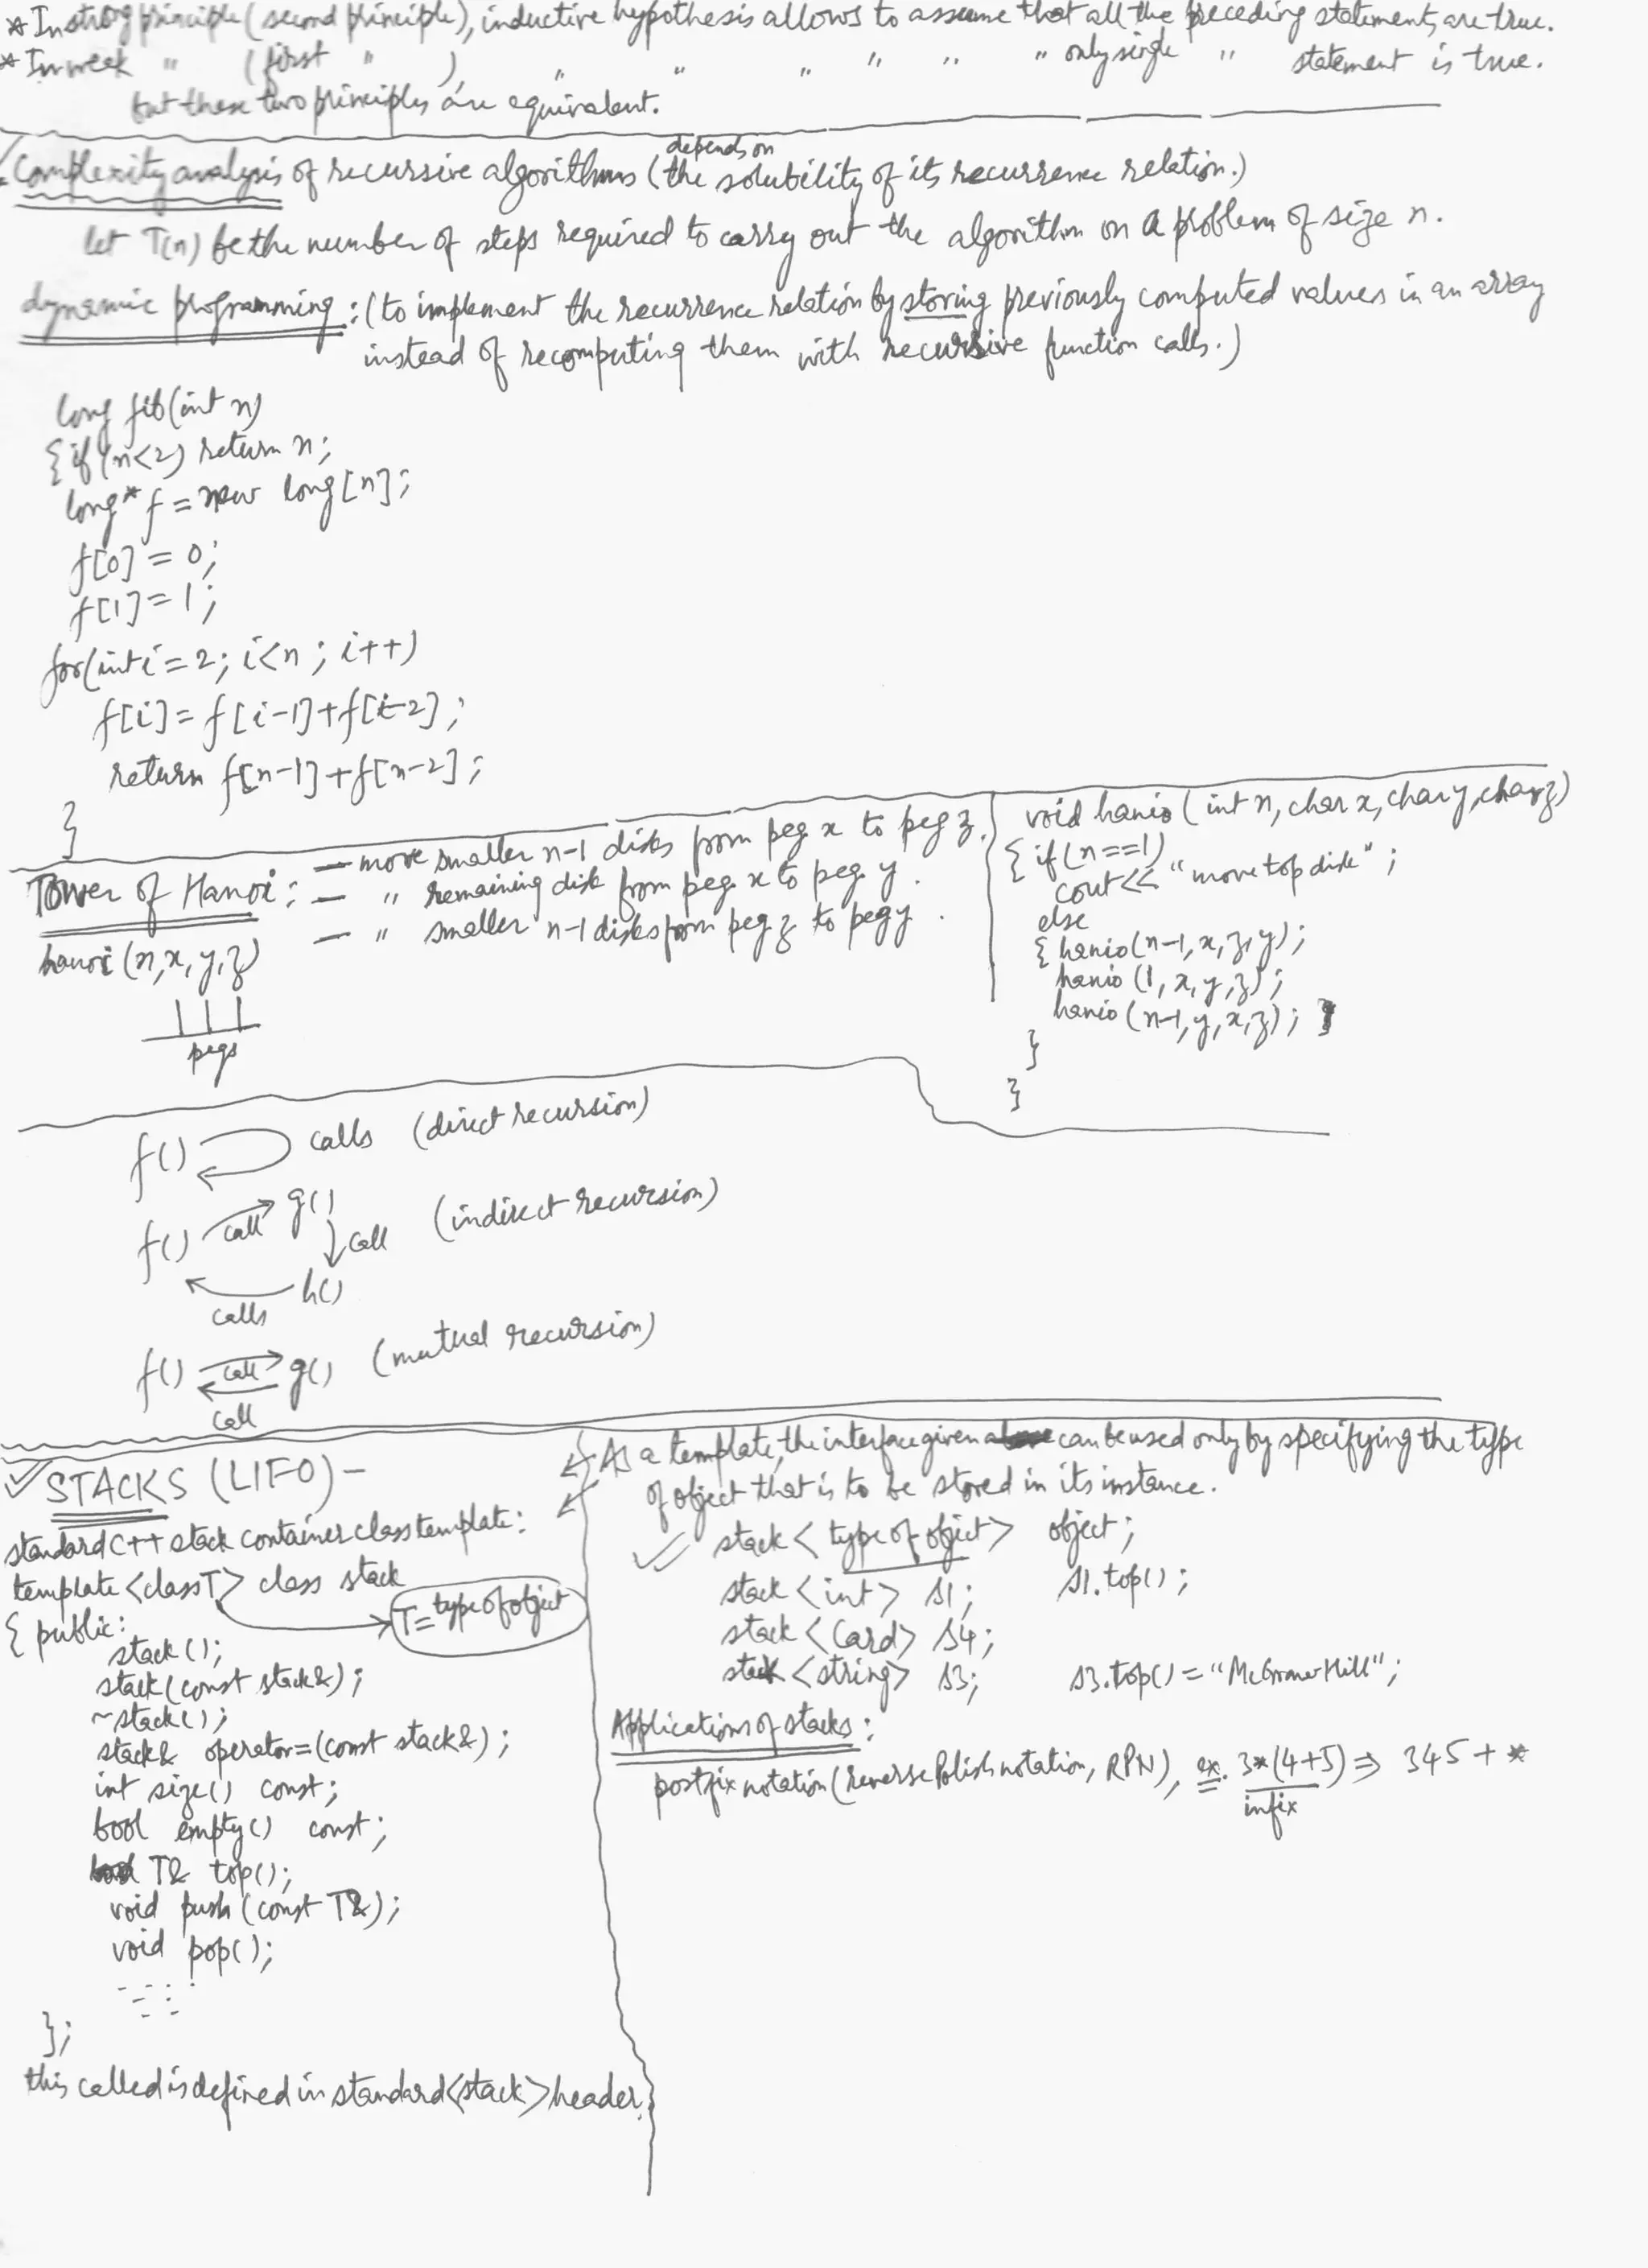 * In strong principle (second principle), inductive hypothesis allows to assume that all the preceding statements are true.
* In week " (first " ), " " " " " " only single " statement is true.
but these two principles are equivalent.
Complexity analysis of recursive algorithms (depends on the solubility of its recurrence relation.)
let T(n) be the number of steps required to carry out the algorithm on a problem of size n.
dynamic programming : (to implement the recurrence relation by storing previously computed values in an array
instead of recomputing them with recursive function calls.)
long fib(int n)
{ if (n<2) return n;
long* f = new long[n];
f[0] = 0;
f[1] = 1;
for(int i = 2; i<n; i++)
f[i] = f[i-1]+f[i-2];
return f[n-1]+f[n-2];
}
Tower of Hanoi : — move smaller n-1 disks from peg x to peg z.
— " remaining disk from peg x to peg y.
— " smaller n-1 disks from peg z to peg y.
hanoi (n,x,y,z)
pegs
void hanio (int n, char x, char y, char z)
{ if (n==1)
cout << "move top disk" ;
else
{ hanio(n-1, x, z, y);
hanio (1, x, y, z);
hanio (n-1, y, x, z); }
}
}
f() calls (direct recursion)
f() call g() call h() calls (indirect recursion)
f() call g() call (mutual recursion)
STACKS (LIFO) -
standard C++ stack container class template :
template <class T> class stack
T = type of object
{ public :
stack ();
stack (const stack&);
~stack();
stack& operator=(const stack&);
int size() const;
bool empty() const;
T& top();
void push (const T&);
void pop();
};
this called is defined in standard <stack> header.
As a template, the interface given can be used only by specifying the type
of object that is to be stored in its instance.
stack < type of object > object;
stack <int> s1; s1.top();
stack <Card> s4;
stack <string> s3; s3.top() = "McGraw Hill";
Applications of stacks :
postfix notation (reverse Polish notation, RPN), ex. 3*(4+5) ⇒ 345+*
infix